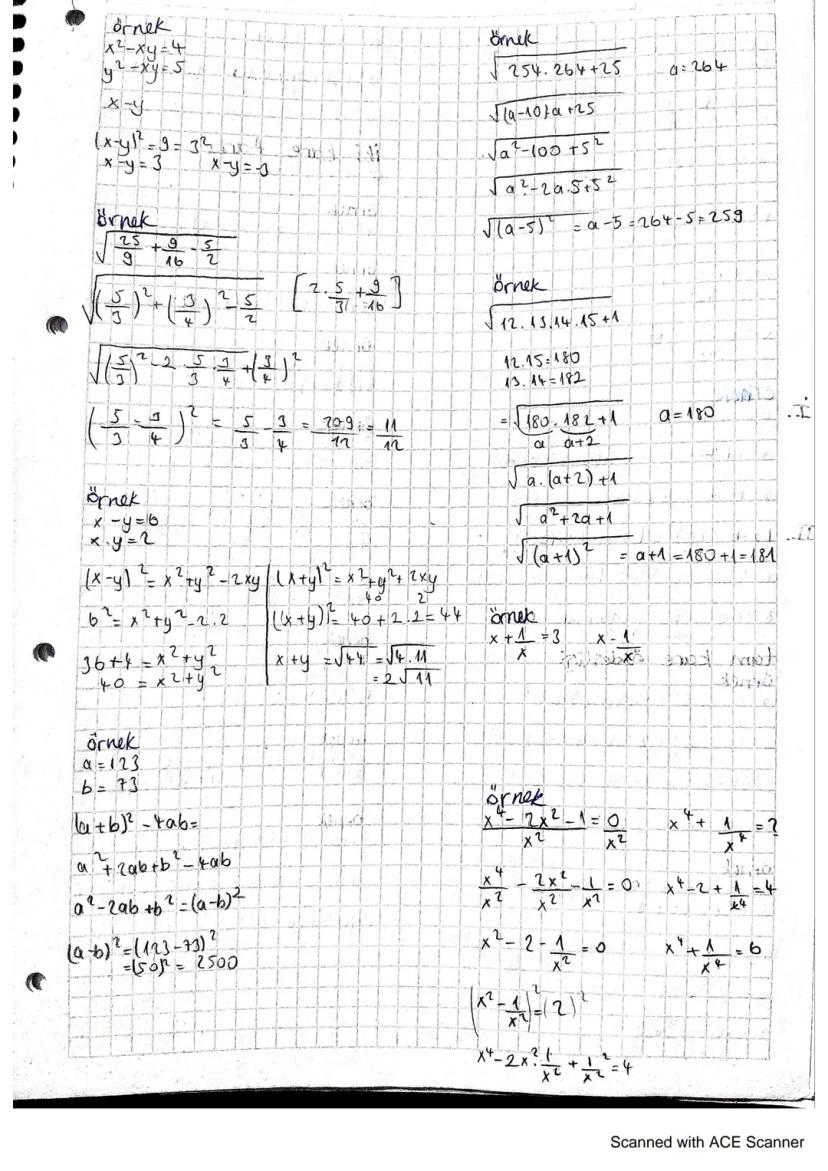 örnek
x²-xy=4
y²-xy=5
x-y
(x-y)²=9=3²
x-y=3 x-y=-3
örnek
√(25/9 + 9/16 - 5/2)
√((5/3)²+(3/4)²-5/2) [2.5/3+9/16]
√((5/3)²-2.5/3.3/4+(3/4)²)
(5/3-3/4)² = 5/3-3/4 = 20-9/12 = 11/12
örnek
x-y=6
x.y=2
(x-y)²=x²+y²-2xy
6²=x²+y²-2.2
36+4=x²+y²
40=x²+y²
(x+y)²=x²+y²+2xy
40 2
((x+y)²=40+2.2=44
x+y=√44=√4.11
=2√11
örnek
a=123
b=73
(a+b)²-4ab=
a²+2ab+b²-4ab
a²-2ab+b²=(a-b)²
(a-b)²=(123-73)²
=(50)²=2500
örnek
√254.264+25 a=264
√(a-10).a+25
√a²-100+5²
√a²-2a.5+5²
√(a-5)² =a-5=264-5=259
örnek
√12.13.14.15+1
12.15=180
13.14=182
=√180.182+1 a=180
a a+2
√a.(a+2)+1
√a²+2a+1
√(a+1)² =a+1=180+1=181
örnek
x+1/x=3 x-1/x
örnek
x⁴-2x²-1/x²=0/x² x⁴+1/x⁴=?
x⁴/x²-2x²/x²-1/x²=0 x⁴-2+1/x⁴=4
x²-2-1/x²=0 x⁴+1/x⁴=6
(x²-1/x²)²=(2)²
x⁴-2x².1/x²+1/x²²=4
Scanned with ACE Scanner